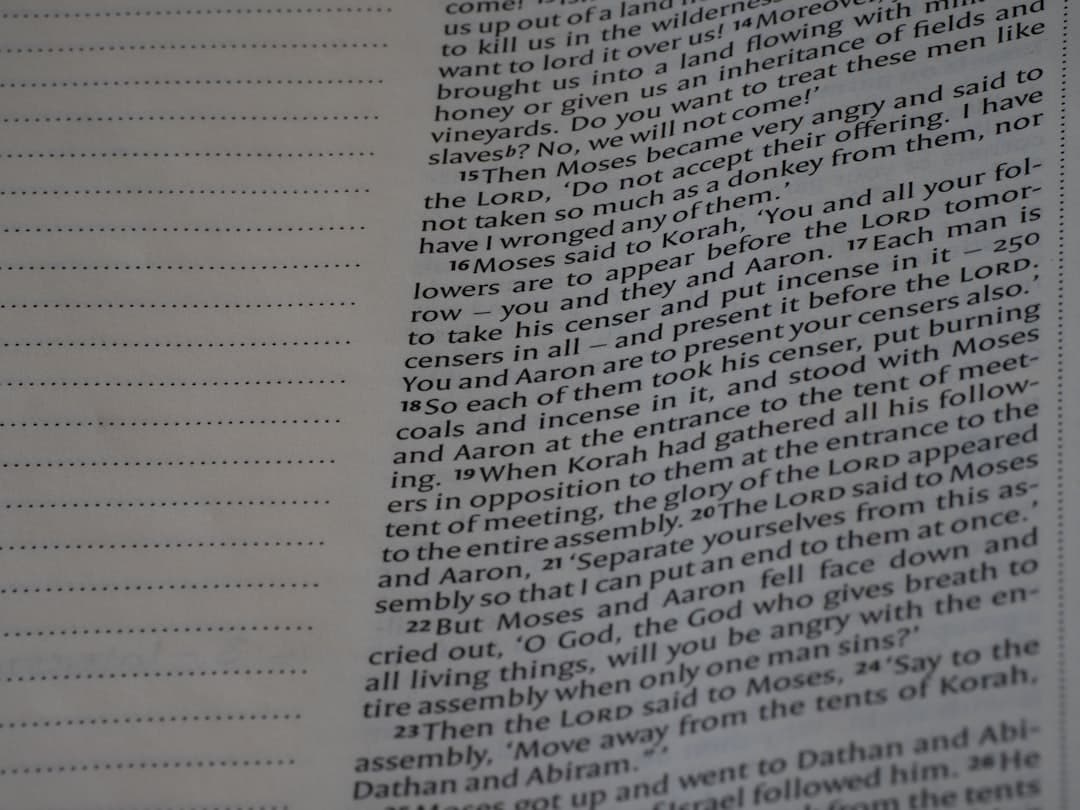 come!
us up out of a land
to kill us in the wilderness
want to lord it over us! 14 Moreover,
brought us into a land flowing with
honey or given us an inheritance of fields and
vineyards. Do you want to treat these men like
slavesb? No, we will not come!’
15 Then Moses became very angry and said to
the LORD, ‘Do not accept their offering. I have
not taken so much as a donkey from them, nor
have I wronged any of them.’
16 Moses said to Korah, ‘You and all your fol-
lowers are to appear before the LORD tomor-
row – you and they and Aaron. 17 Each man is
to take his censer and put incense in it – 250
censers in all – and present it before the LORD.
You and Aaron are to present your censers also.’
18 So each of them took his censer, put burning
coals and incense in it, and stood with Moses
and Aaron at the entrance to the tent of meet-
ing. 19 When Korah had gathered all his follow-
ers in opposition to them at the entrance to the
tent of meeting, the glory of the LORD appeared
to the entire assembly. 20 The LORD said to Moses
and Aaron, 21 ‘Separate yourselves from this as-
sembly so that I can put an end to them at once.’
22 But Moses and Aaron fell face down and
cried out, ‘O God, the God who gives breath to
all living things, will you be angry with the en-
tire assembly when only one man sins?’
23 Then the LORD said to Moses, 24 ‘Say to the
assembly, “Move away from the tents of Korah,
Dathan and Abiram.”’
25 Moses got up and went to Dathan and Abi-
Israel followed him. 26 He
from the tents